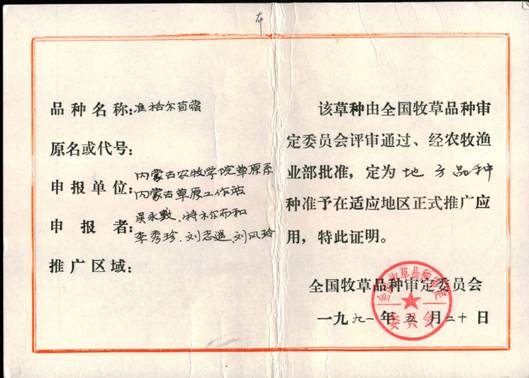 品种名称：准格尔苜蓿
原名或代号：
申报单位：内蒙古农牧学院草原系
内蒙古草原工作站
申报者：吴永敷、特木尔布和
李秀珍、刘志遥、刘凤玲
推广区域：
该草种由全国牧草品种审
定委员会评审通过、经农牧渔
业部批准，定为地方品种
种准予在适应地区正式推广应
用，特此证明。
全国牧草品种审定委员会
一九九一年五月二十日
全国牧草品种审定
委员会